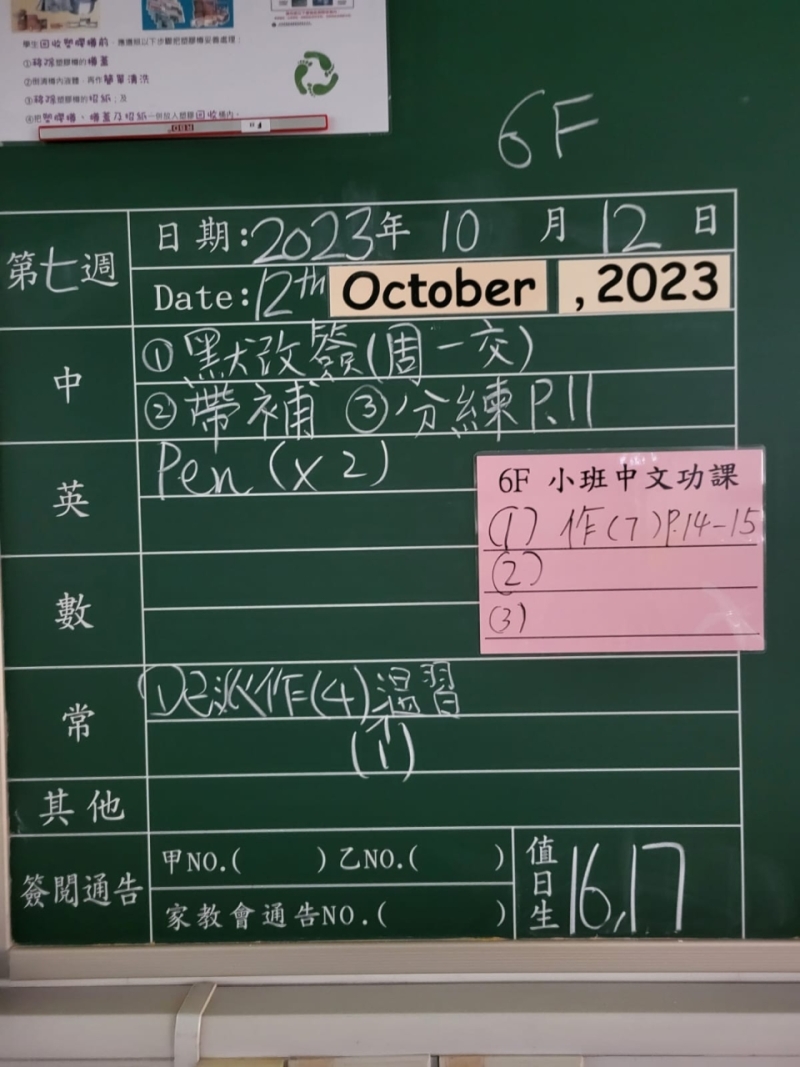 學生回收塑膠樽前，應遵照以下步驟把塑膠樽妥善處理：
①移除塑膠樽的樽蓋
②倒清樽內液體，再作簡單清洗
③移除塑膠樽的招紙；及
④把塑膠樽、樽蓋及招紙一併放入塑膠回收桶內。
6F
第七週
日期:2023年 10 月 12 日
Date:12th October ,2023
中
①默改簽(周一交)
②帶補 ③分練P.11
英
Pen(x2)
6F 小班中文功課
(1) 作(7)P.14-15
(2)
(3)
數
常
作(4)溫習
(1)
其他
簽閱通告
甲NO.( )乙NO.( )
家教會通告NO.( )
值日生
16,17